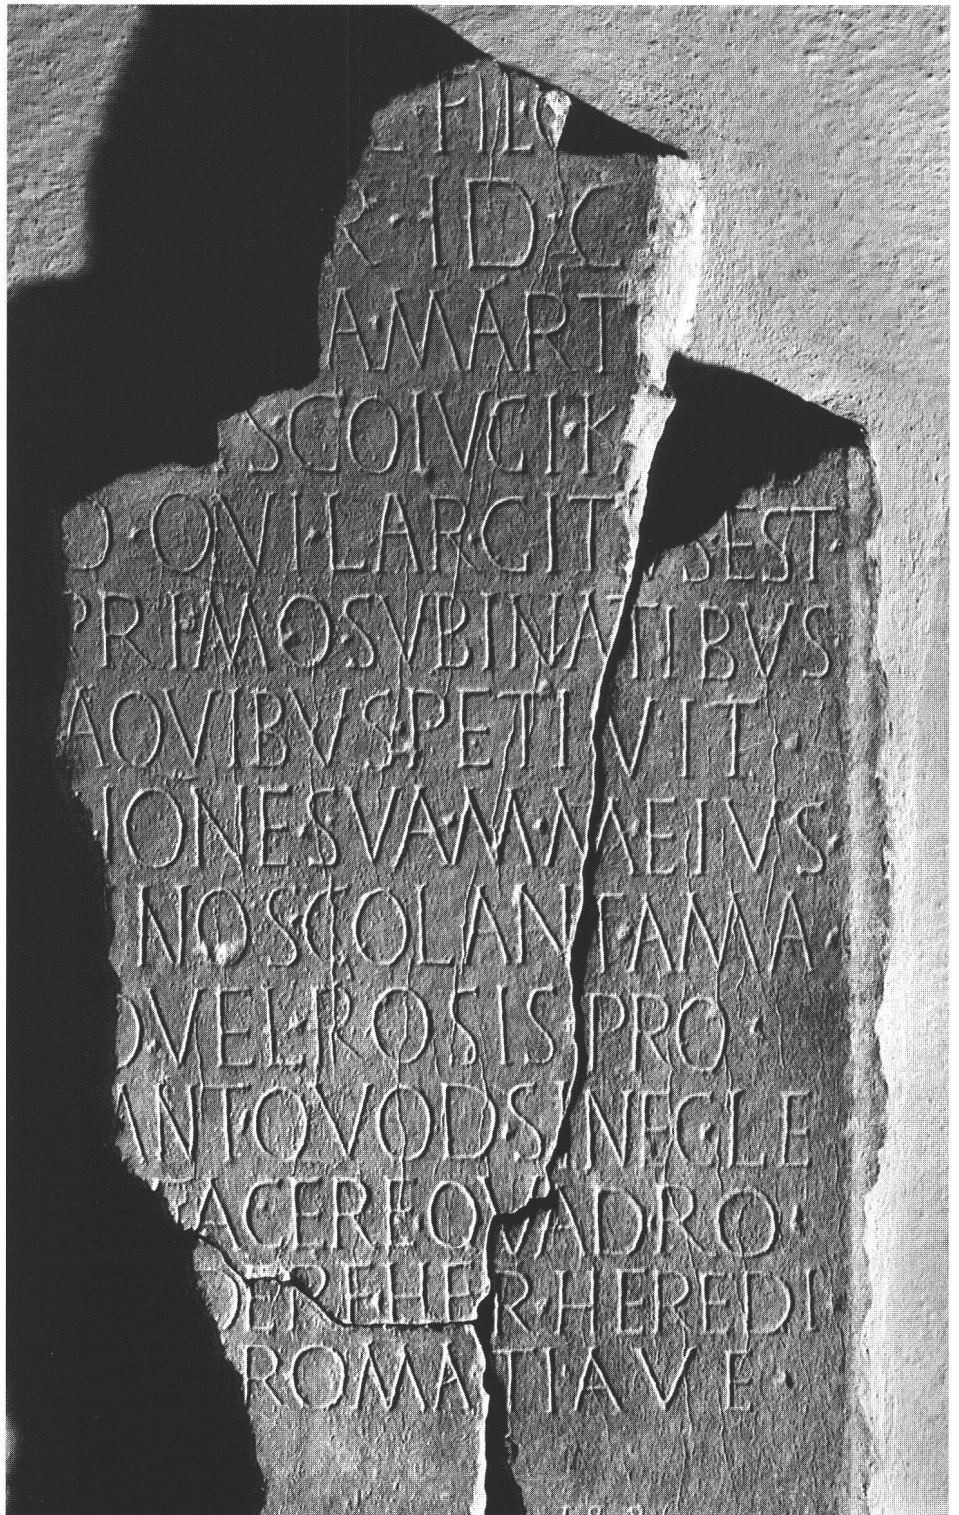 FIL
R · IDC
AMART
S · COIVGI · K
O · QVI · LARGIT SEST ·
PRIMO SVB INATIBVS
AQVIBVS PETIVIT ·
IONE · SVA · M · MAEIVS ·
NOS · COLANT · FAMA ·
VEL · ROSIS · PRO ·
ANT · QVOD · SI NEGLE
ACERE · QVADRO ·
DERE · HER · HEREDI ·
ROMATI · AVE ·